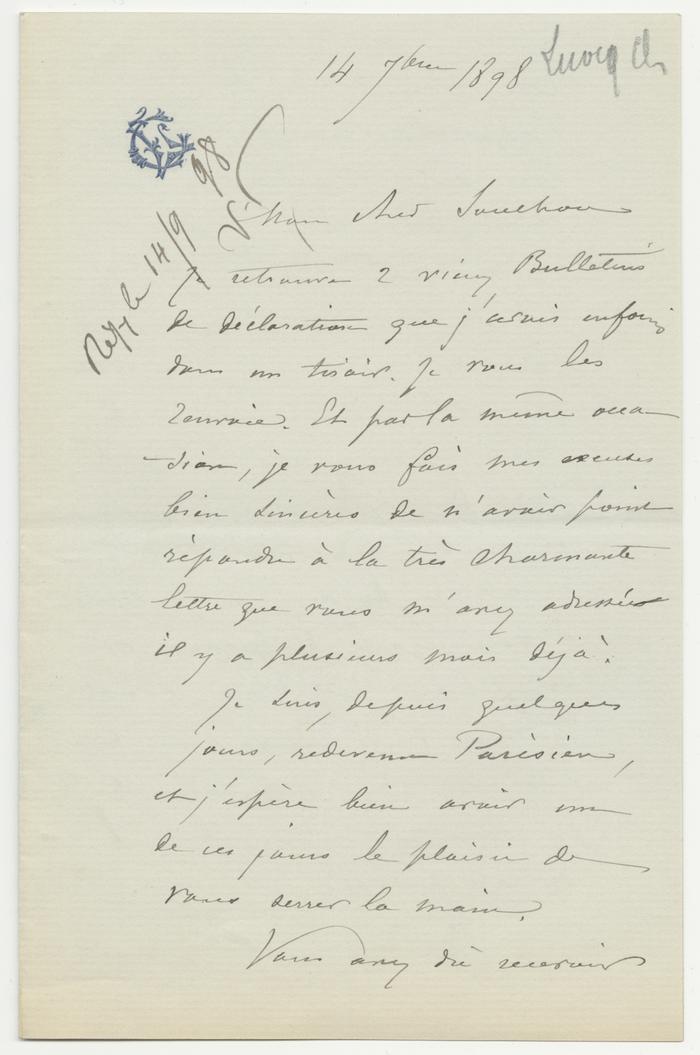 14 7bre 1898
Lecocq Ch
Rép le 14/9 98
Mon cher Souchon
Je retrouve 2 vieux Bulletins
de déclaration que j'avais enfouis
dans un tiroir. Je vous les
renvoie. Et par la même occa
-sion, je vous fais mes excuses
bien sincères de n'avoir point
répondu à la très charmante
lettre que vous m'avez adressée
il y a plusieurs mois déjà.
Je suis, depuis quelques
jours, redevenu Parisien,
et j'espère bien avoir un
de ces jours le plaisir de
vous serrer la main.
Vous avez dû recevoir